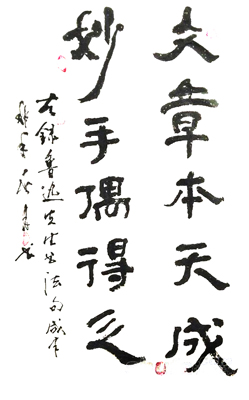 文章本天成
妙手偶得之
右録魯迅先生